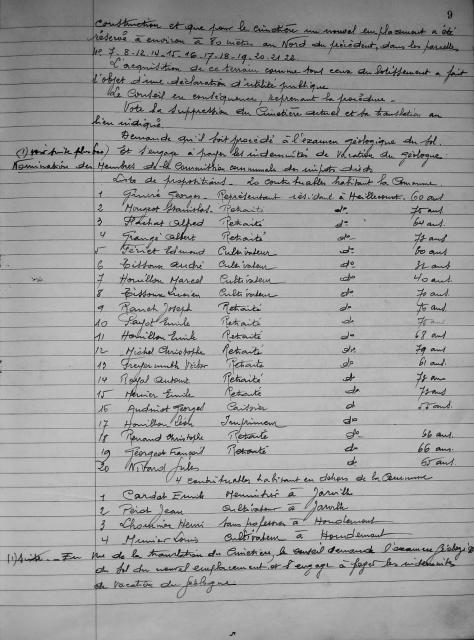 9
construction et que pour le cimetière un nouvel emplacement a été
réservé à environ à 80 mètres au Nord du précédent, dans les parcelles
N° 7-8-12-14-15-16-17-18-19-20-21-22.
L'acquisition de ce terrain comme tout ceux du lotissement a fait
l'objet d'une déclaration d'utilité publique
Le Conseil en conséquence, reprenant la procédure -
Vote la suppression du Cimetière actuel et sa translation au
lieu indiqué.
Demande qu'il soit procédé à l'examen géologique du sol.
(1) voir suite plus bas) Et s'engage à payer les indemnités de Vacation du géologue
Nomination des Membres de la Commission communale des impôts directs
Liste de propositions - 20 contribuables habitant la Commune.
1 Georges - Représentant résidant à Heillecourt 60 ans
2 Mougeot Stanislas Retraité do 75 ans
3 Alfred Retraité do 64 ans
4 Grangé Albert Retraité do 72 ans
5 Fériet Edmond Cultivateur do 60 ans
6 Tissoux André Cultivateur do 32 ans
7 Houillon Marcel Cultivateur do 40 ans
8 Tissoux Lucien Cultivateur do 70 ans
9 Joseph Retraité do 70 ans
10 Payot Emile Retraité do 75 ans
11 Houillon Emile Retraité do 68 ans
12 Michel Christophe Retraité do 79 ans
13 Freyermuth Victor Retraité do 61 ans
14 Royal Retraité do 72 ans
15 Emile Retraité do 72 ans
16 Georges d
17 Houillon Léon Imprimeur do
18 Renaud Christophe Retraité do 66 ans
19 Georgeot François Retraité do 66 ans
20 Jules d 65 ans
4 contribuables habitant en dehors de la Commune
1 Cardot Emile Menuisier à Jarville
2 Périot Jean Cultivateur à Jarville
3 Henri Sans profession à Houdemont
4 Meunier Louis Cultivateur à Houdemont
(1) Suite - En vue de la translation du Cimetière, le conseil demande l'examen géologique
du sol du nouvel emplacement et s'engage à payer les indemnités
de vacation du géologue